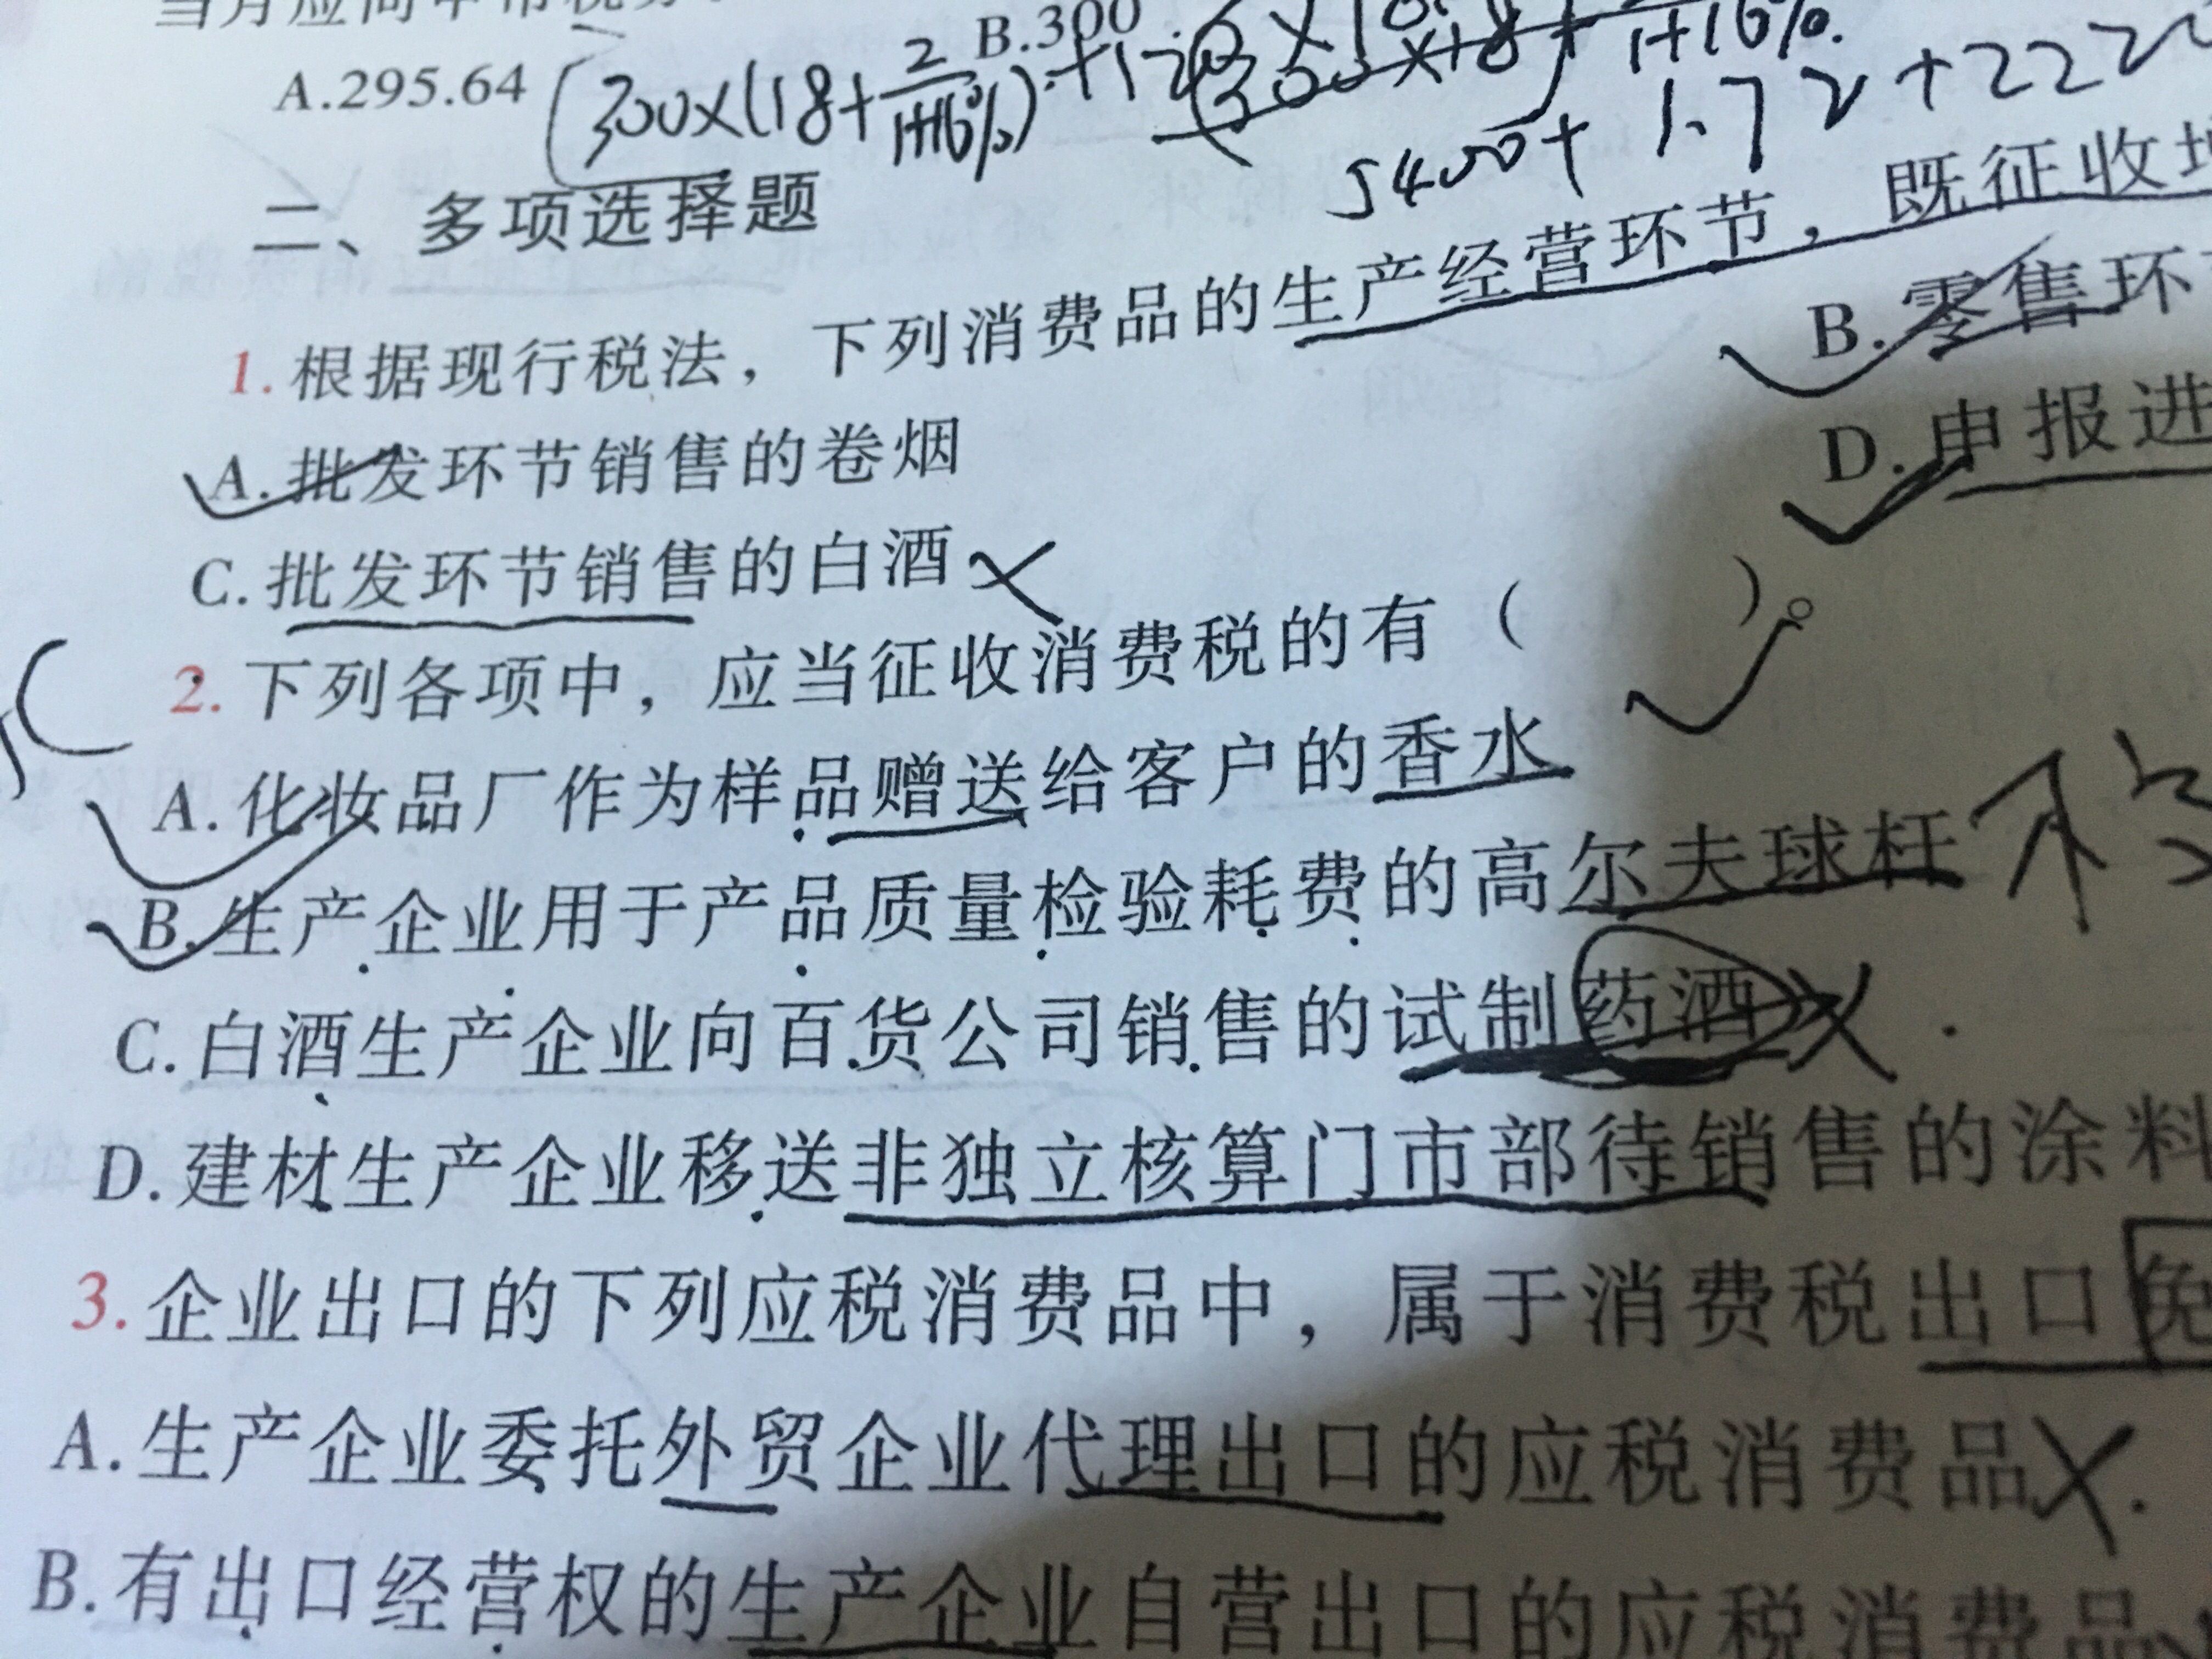 A.295.64
B.300
(300×(18+2/1+16%)
1+16%.
5400+1.72+222
二、多项选择题
1.根据现行税法，下列消费品的生产经营环节，既征收
A.批发环节销售的卷烟
B.零售环
C.批发环节销售的白酒
D.申报进
2.下列各项中，应当征收消费税的有（ ）。
A.化妆品厂作为样品赠送给客户的香水
B.生产企业用于产品质量检验耗费的高尔夫球杆
C.白酒生产企业向百货公司销售的试制药酒
D.建材生产企业移送非独立核算门市部待销售的涂料
3.企业出口的下列应税消费品中，属于消费税出口免
A.生产企业委托外贸企业代理出口的应税消费品
B.有出口经营权的生产企业自营出口的应税消费品